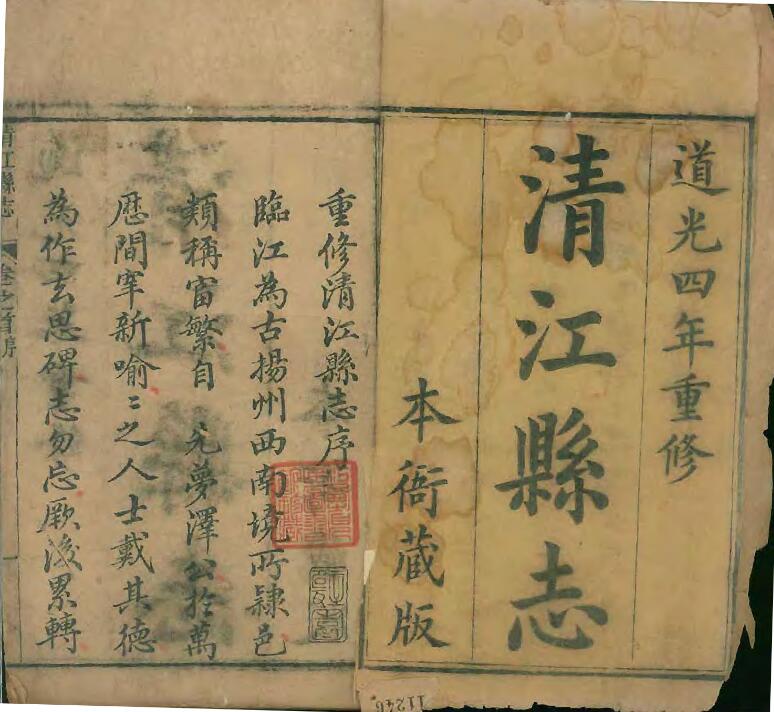 道光四年重修
清江縣志
本衙藏版
重修清江縣志序
臨江為古揚州西南境所隸邑
類稱富繁自 先夢澤公於萬
厯間宰新喻〻之人士戴其德
為作去思碑志勿忘厥後累轉
清江縣志 卷之首序
11246